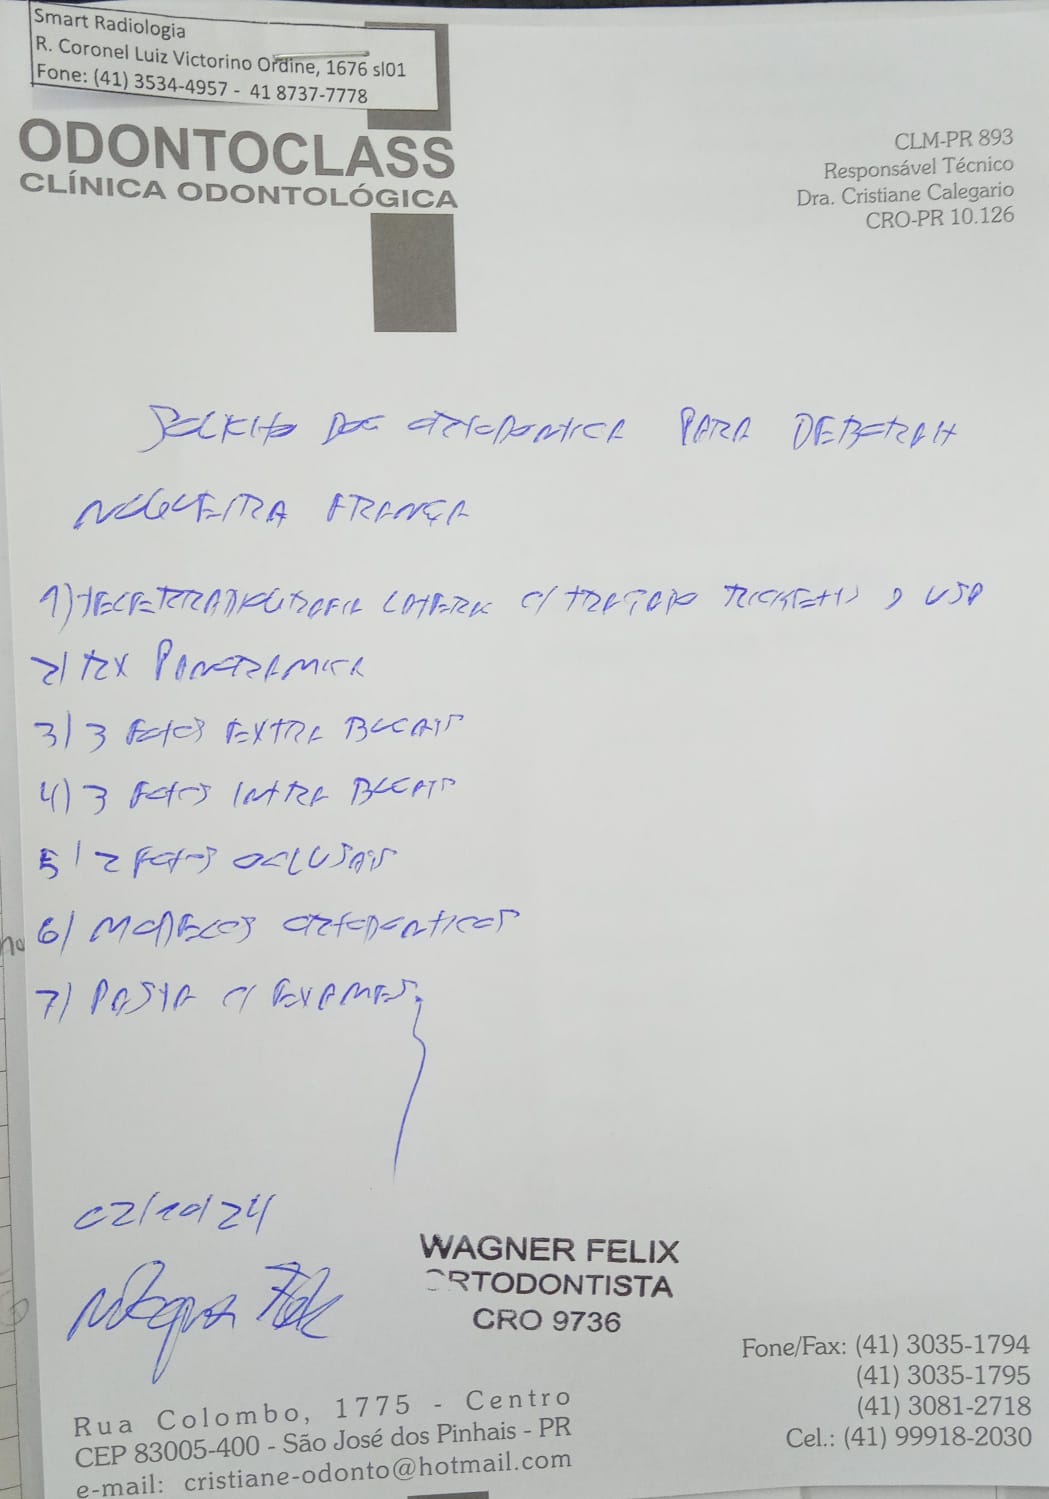 Smart Radiologia
R. Coronel Luiz Victorino Ordine, 1676 sl01
Fone: (41) 3534-4957 - 41 8737-7778
ODONTOCLASS
CLÍNICA ODONTOLÓGICA
CLM-PR 893
Responsável Técnico
Dra. Cristiane Calegario
CRO-PR 10.126
SOLICITO DOC ORTODONTICA PARA DEBORAH
NOGUEIRA FRANÇA
1) TELERRADIOGRAFIA LATERAL C/ TRAÇADO RICKETTS E USP
2) RX PANORAMICA
3) 3 FOTOS EXTRA BUCAIS
4) 3 FOTOS INTRA BUCAIS
5) 2 FOTOS OCLUSAIS
6) MODELOS ORTODONTICOS
7) PASTA C/ EXAMES
02/10/24
WAGNER FELIX
ORTODONTISTA
CRO 9736
Fone/Fax: (41) 3035-1794
(41) 3035-1795
(41) 3081-2718
Cel.: (41) 99918-2030
Rua Colombo, 1775 - Centro
CEP 83005-400 - São José dos Pinhais - PR
e-mail: cristiane-odonto@hotmail.com